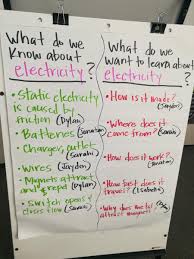 What do we
know about
electricity?
• Static electricity
is caused by
friction (Dylan)
• Batteries (Sarah)
• Charger, outlet
• Wires (Jayden)
• Magnets attract
and repel (Dylan)
• Switch opens &
closes flow
What do we
want to learn about
electricity?
• How is it made?
(Jayden)
• Where does it
come from?
• How does it work?
• How fast does it
travel? (Isabella)
• Why does the
attract magnets?